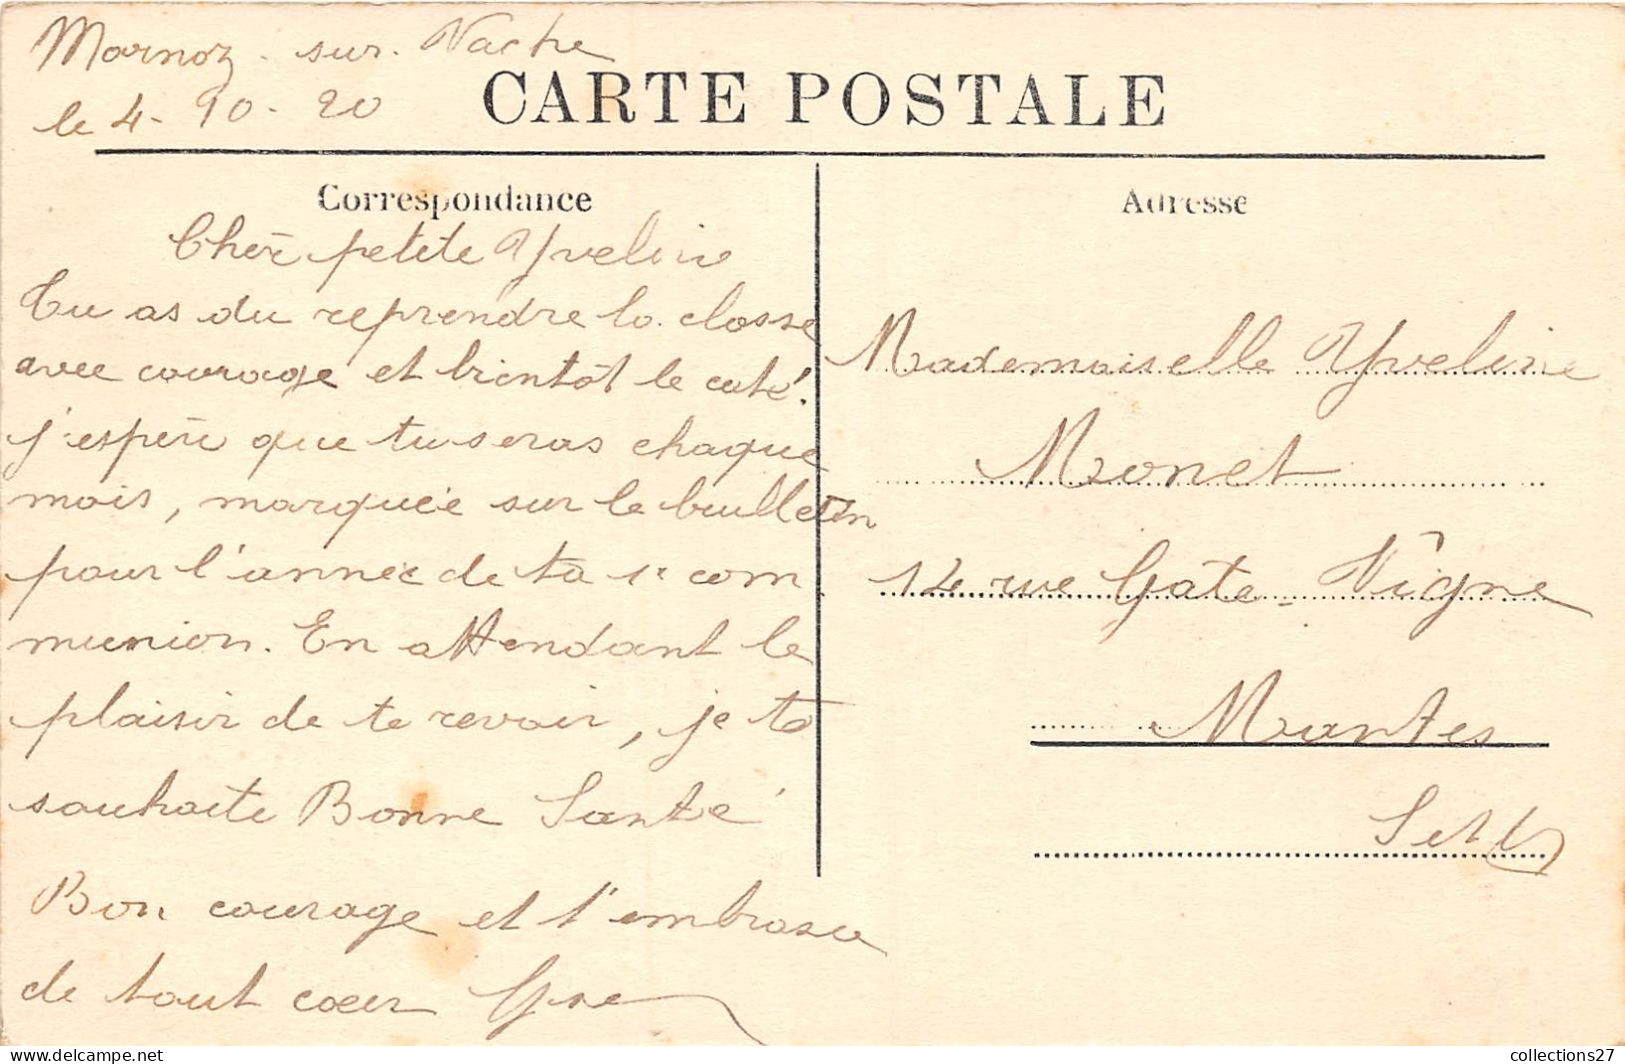 Marnoz. sur. Vache
le 4- 10- 20
CARTE POSTALE
Correspondance
Chère petite Yveline
Tu as du reprendre la classe
avec courage et bientôt le caté!
j'espère que tu seras chaque
mois, marquée sur le bulletin
pour l'année de ta 1e com
munion. En attendant le
plaisir de te revoir, je te
souhaite Bonne Santé
Bon courage et t'embrasse
de tout cœur
Adresse
Mademoiselle Yveline
Monet
12 rue Gate-Vigne
Mantes
S et O
collections27